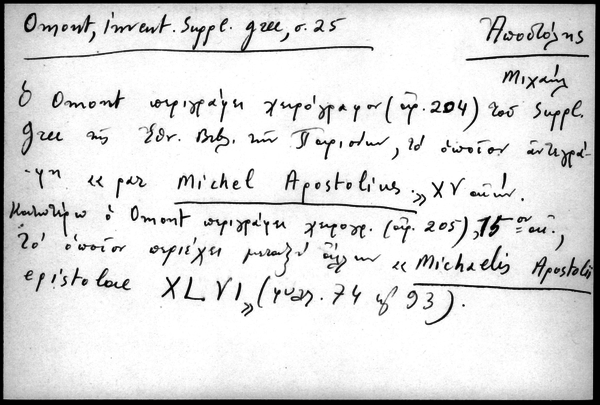 Omont, invent. Suppl. grec, σ. 25
Ἀποστόλης
Μιχαήλ
Ὁ Omont περιγράφει χειρόγραφον (ἀρ. 204) τοῦ Suppl.
grec τῆς Ἐθν. Βιβ. τῶν Παρισίων, τὸ ὁποῖον ἀντεγρά-
-φη « par Michel Apostolius » XV αἰών.
Κατωτέρω ὁ Omont περιγράφει χειρόγρ. (ἀρ. 205), 15ον αἰ.,
τὸ ὁποῖον περιέχει μεταξὺ ἄλλων « Michaelis Apostolii
epistolae XLVI » (φυλ. 74 ἕως 93).